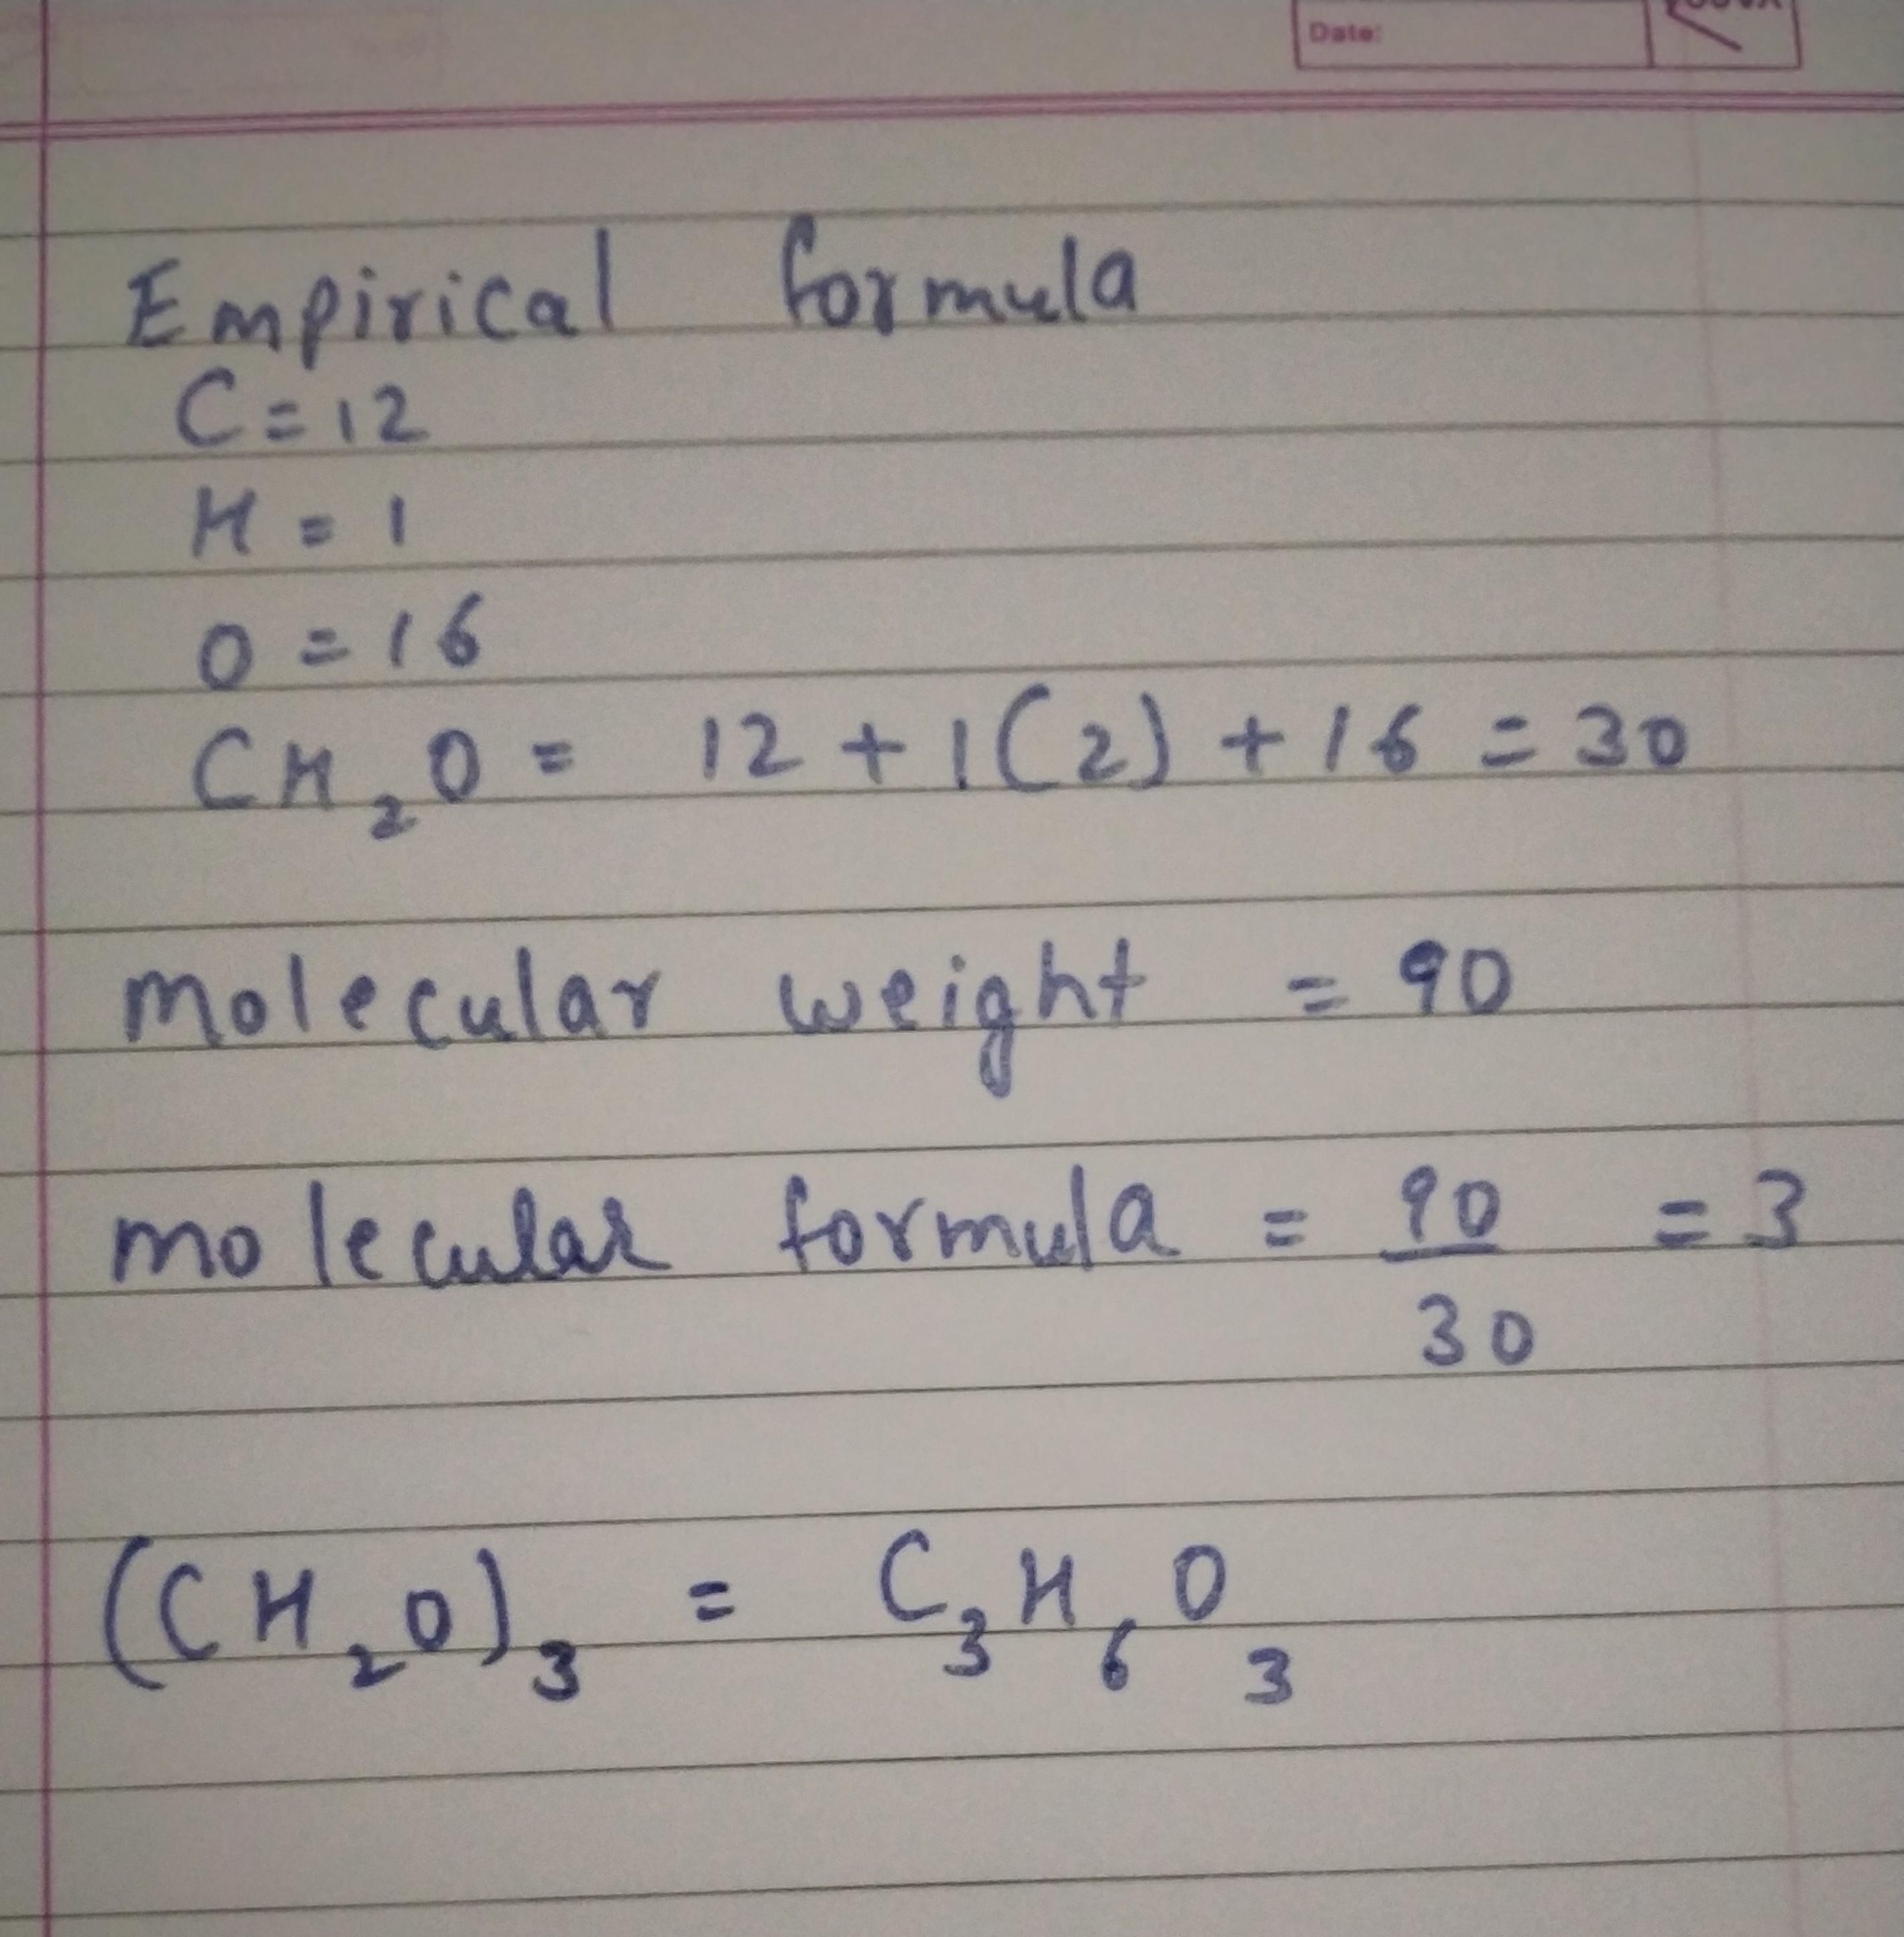 Date:
Empirical formula
C = 12
H = 1
O = 16
CH₂O = 12 + 1(2) + 16 = 30
molecular weight = 90
molecular formula = 90/30 = 3
(CH₂O)₃ = C₃H₆O₃